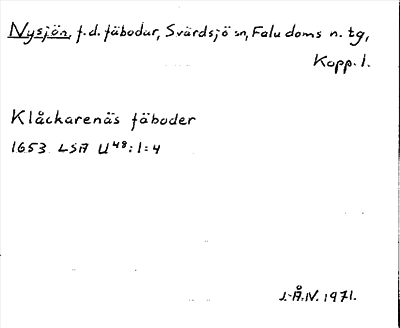 Nysjön, f.d. fäbodar, Svärdsjö sn, Falu doms n. tg,
Kopp. l.
Klåckarenäs fäboder
1653 LSA U48:1:4
J.-Å.N. 1971.